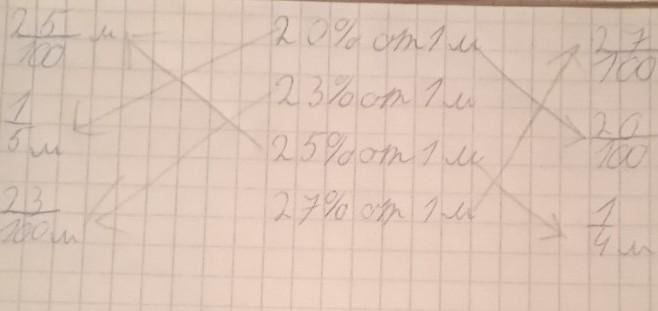 25/100 м
1/5 м
23/100 м
20% от 1 м
23% от 1 м
25% от 1 м
27% от 1 м
27/100
20/100
1/4 м